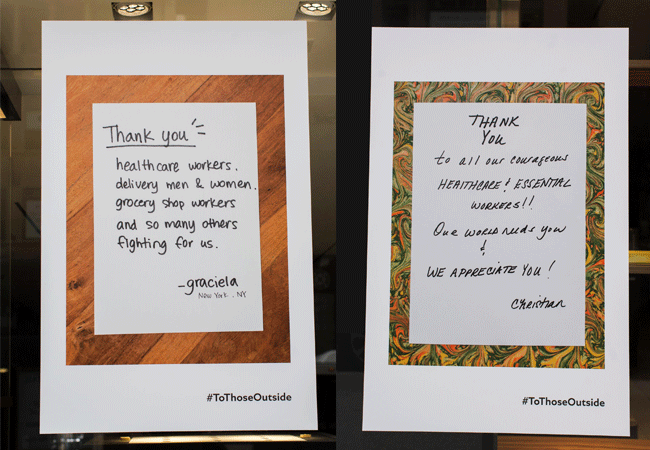 Thank you
healthcare workers.
delivery men & women.
grocery shop workers
and so many others
fighting for us.
-graciela
New York, NY
#ToThoseOutside
THANK
YOU
to all our courageous
HEALTHCARE & ESSENTIAL
WORKERS!!
Our WORLD needs you
&
WE APPRECIATE YOU!
Christian
#ToThoseOutside